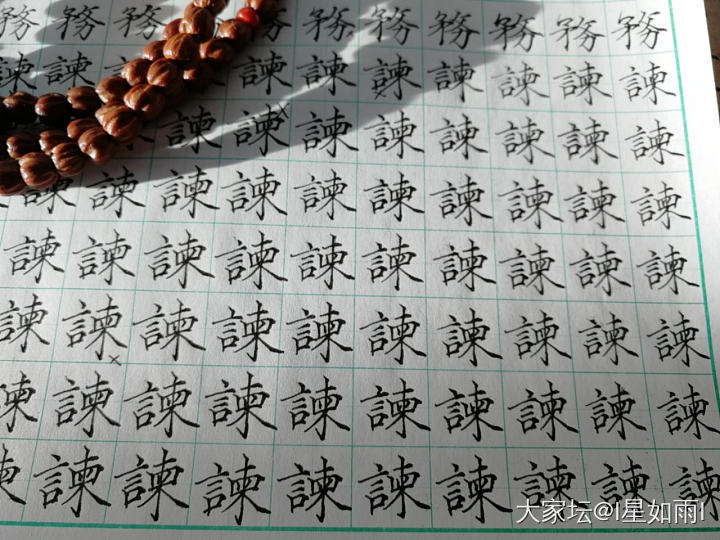 務務務務務務務務務務
諫諫諫諫諫諫諫諫諫諫
諫諫諫諫諫諫諫諫
諫諫諫諫諫諫諫諫諫諫
諫諫諫諫諫諫諫諫諫諫
諫諫諫諫諫諫諫諫諫諫
諫諫諫諫諫諫諫諫諫諫
諫諫諫諫諫諫諫諫諫諫
大家坛@I星如雨I